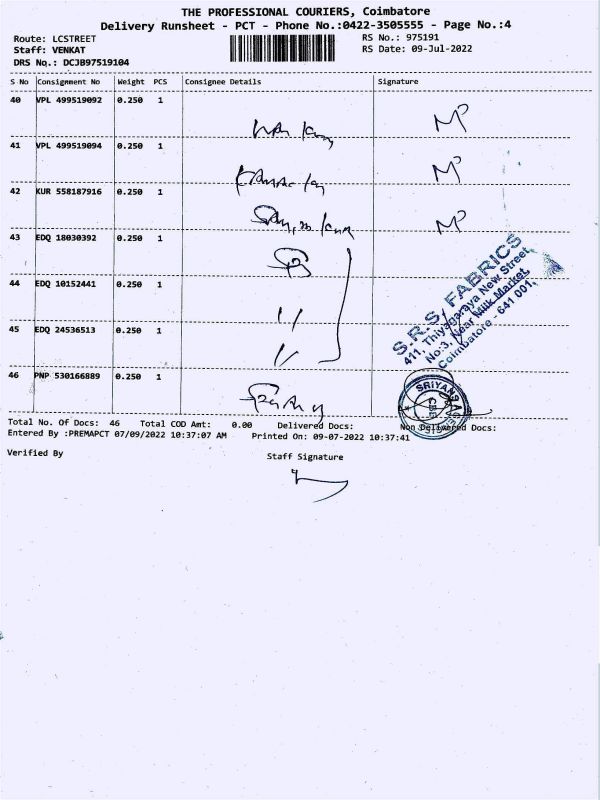 THE PROFESSIONAL COURIERS, Coimbatore
Delivery Runsheet - PCT - Phone No.:0422-3505555 - Page No.:4
Route: LCSTREET
RS No.: 975191
Staff: VENKAT
RS Date: 09-Jul-2022
DRS No.: DCJB97519104
S No Consignment No Weight PCS Consignee Details Signature
40 VPL 499519092 0.250 1
41 VPL 499519094 0.250 1
42 KUR 558187916 0.250 1
43 EDQ 18030392 0.250 1
44 EDQ 10152441 0.250 1
45 EDQ 24536513 0.250 1
S.R.S. FABRICS
411, Thiyagaraya New Street,
No:3, Near Milk Market,
Coimbatore - 641 001.
46 PNP 530166889 0.250 1
Total No. Of Docs: 46 Total COD Amt: 0.00 Delivered Docs: Non Delivered Docs:
Entered By :PREMAPCT 07/09/2022 10:37:07 AM Printed On: 09-07-2022 10:37:41
Verified By
Staff Signature